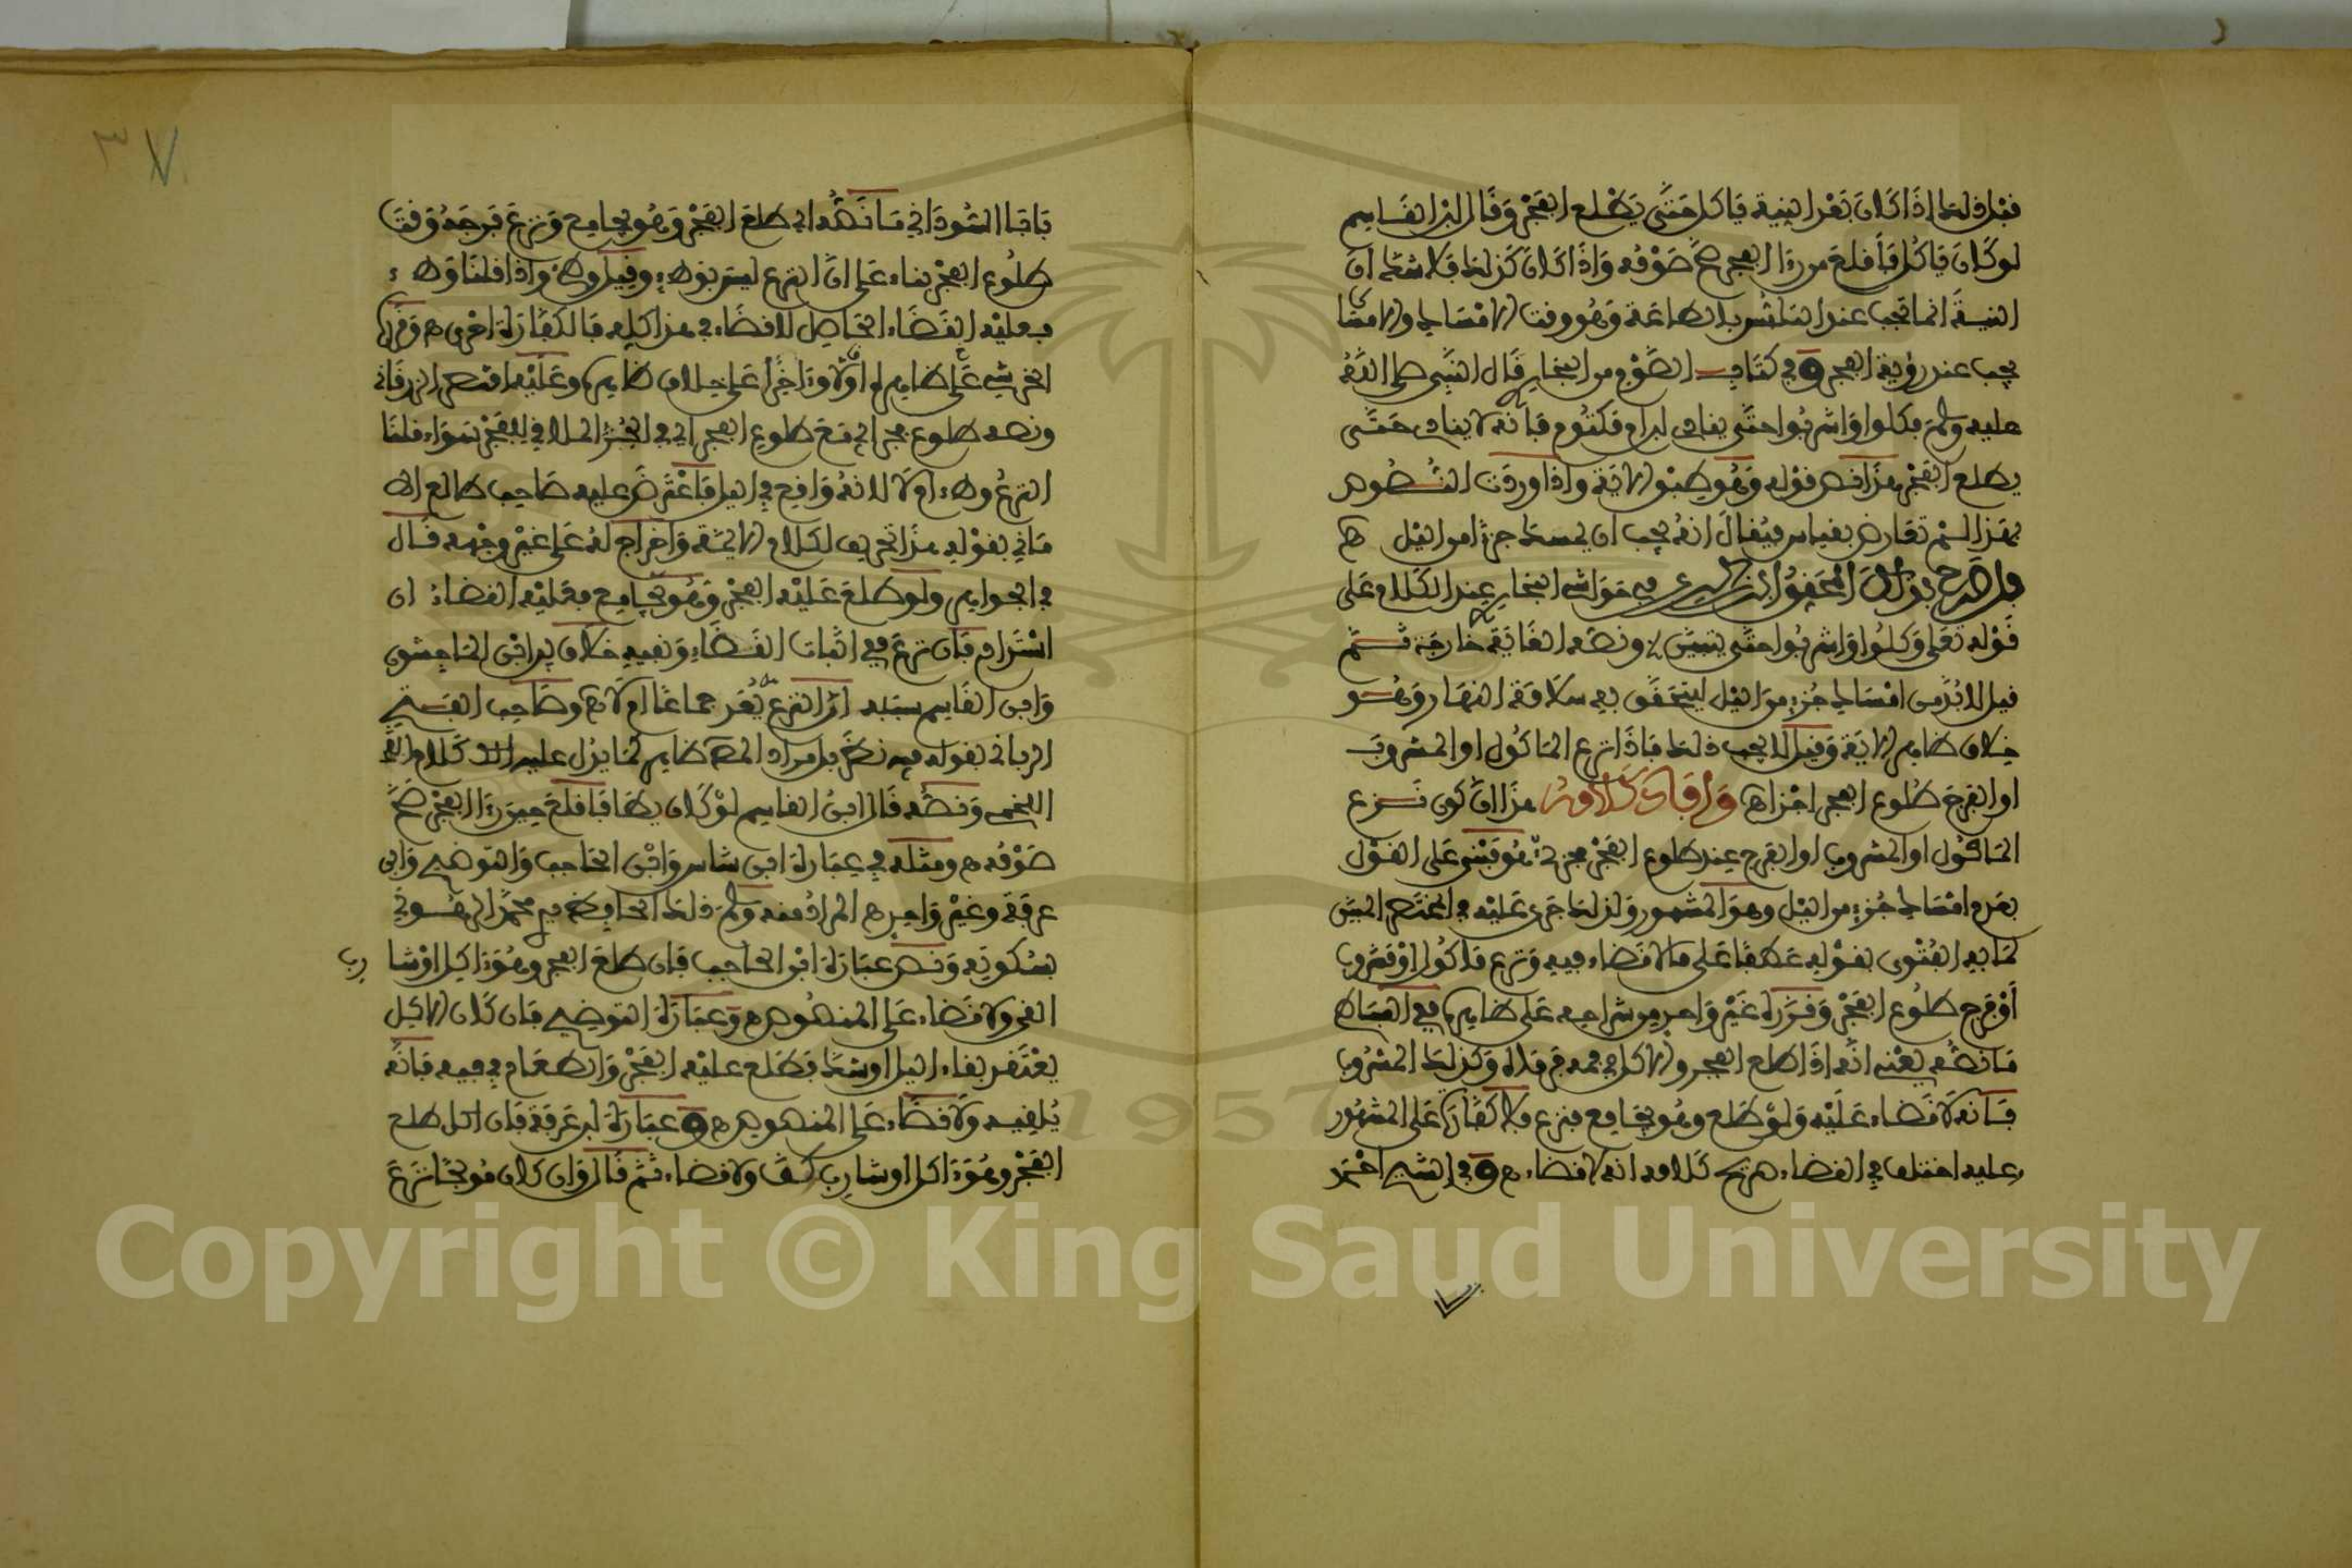 قبل ذلك اذا كان بعد النية ياكل حتى يطلع الفجر وقال ابن القاسم
لو كان ياكل فاقلع حين را الفجر صح صومه واذا كان كذلك فلا شك ان
النية انما تجب عند التلبس بالطاعة وهو وقت الامساك والامساك
يجب عند رؤية الفجر وفي كتاب الصوم من البخاري قال النبي صلى الله
عليه وسلم فكلوا واشربوا حتى ينادي ابن ام مكتوم فانه لا ينادي حتى
يطلع الفجر هذا نص قوله وهو طبق الاية واذا وردت النصوص
بهذا لم تعارض بقياس فيقال انه يجب ان يمسك جزءا من اليل ه
وقد صرح بذلك المحقق في حواشي البخاري عند الكلام على
قوله تعلى وكلوا واشربوا حتى يتبين ونصه الغاية خارجة ثم
قيل لا بد من امساك جزء من اليل ليتحقق به سلامة النهار وهو
خلاف ظاهر الاية وقيل لا يجب ذلك فاذا نزع الماكول او المشروب
او الفرج طلوع الفجر اجزاه وافاد كلامه هذا ان كون نزع
الماكول او المشروب او الفرج عند طلوع الفجر مجزيا هو مبني على القول
بعدم امساك جزء من اليل وهو المشهور ولذلك جرى عليه في المختصر المبين
لما به الفتوى بقوله عطفا على ما لا قضاء فيه ونزع ماكول او مشروب
او فرج طلوع الفجر وقرره غير واحد من شراحه على ظاهره ففي
ما نصه يعني انه اذا طلع الفجر والاكل في فمه فرماه وكذلك المشروب
فانه لا قضاء عليه ولو طلع وهو يجامع فنزع فلا كفارة على المشهور
وعليه اختلف في القضاء صريح كلامه انه لا قضاء ه وفي الشيخ احمد
بابا السوداني ما نصه اي طلع الفجر وهو يجامع ونزع فرجه وقت
طلوع الفجر بناء على ان النزع ليس بوطء وقيل وطء واذا قلنا وطء
فعليه القضاء الحاصل لا قضاء في هذا كله فالكفارة احرى ه وقرر
الخرشي على ظاهره اولا وءاخرا على خلاف ظاهره وعليه اقتصر الزرقاني
ونصه طلوع فجر اي مع طلوع الفجر اي في الجزء الملاقي للفجر سواء قلنا
النزع وطء ام لا لانه واقع في اليل فاعترض عليه صاحب طالع الا
ماني بقوله هذا تحريف لكلام الايمة واخراج له على غير وجهه قال
في الجواهر ولو طلع عليه الفجر وهو يجامع فعليه القضاء ان
استدام فان نزع ففي اثبات القضاء ونفيه خلاف بين ابن الماجشون
وابن القاسم سببه ان النزع يعد جماعا ام لا ه وصاحب الفتح
الرباني بقوله فيه نظر بل مراد المص ظاهره لما يدل عليه كلام
اللخمي ونصه قال ابن القاسم لو كان يطا فاقلع حين را الفجر صح
صومه ه ومثله في عبارة ابن شاس وابن الحاجب والتوضيح وابن
عرفة وغير واحد ه المراد منه وسلم ذلك الحافظ محمد الرهوني
بسكوته ونص عبارة ابن الحاجب فان طلع الفجر وهو ءاكل او شارب
القى ولا قضاء على المنصوص ه وعبارة التوضيح فان كان الاكل
يعتقد بقاء اليل او شك فطلع عليه الفجر والطعام في فيه فانه
يلقيه ولا قضاء على المنصوص ه وعبارة ابن عرفة فان اكل طلع
الفجر وهو ءاكل او شارب كف ولا قضاء ثم قال وان كان مولجا نزع
Copyright © King Saud University
1957